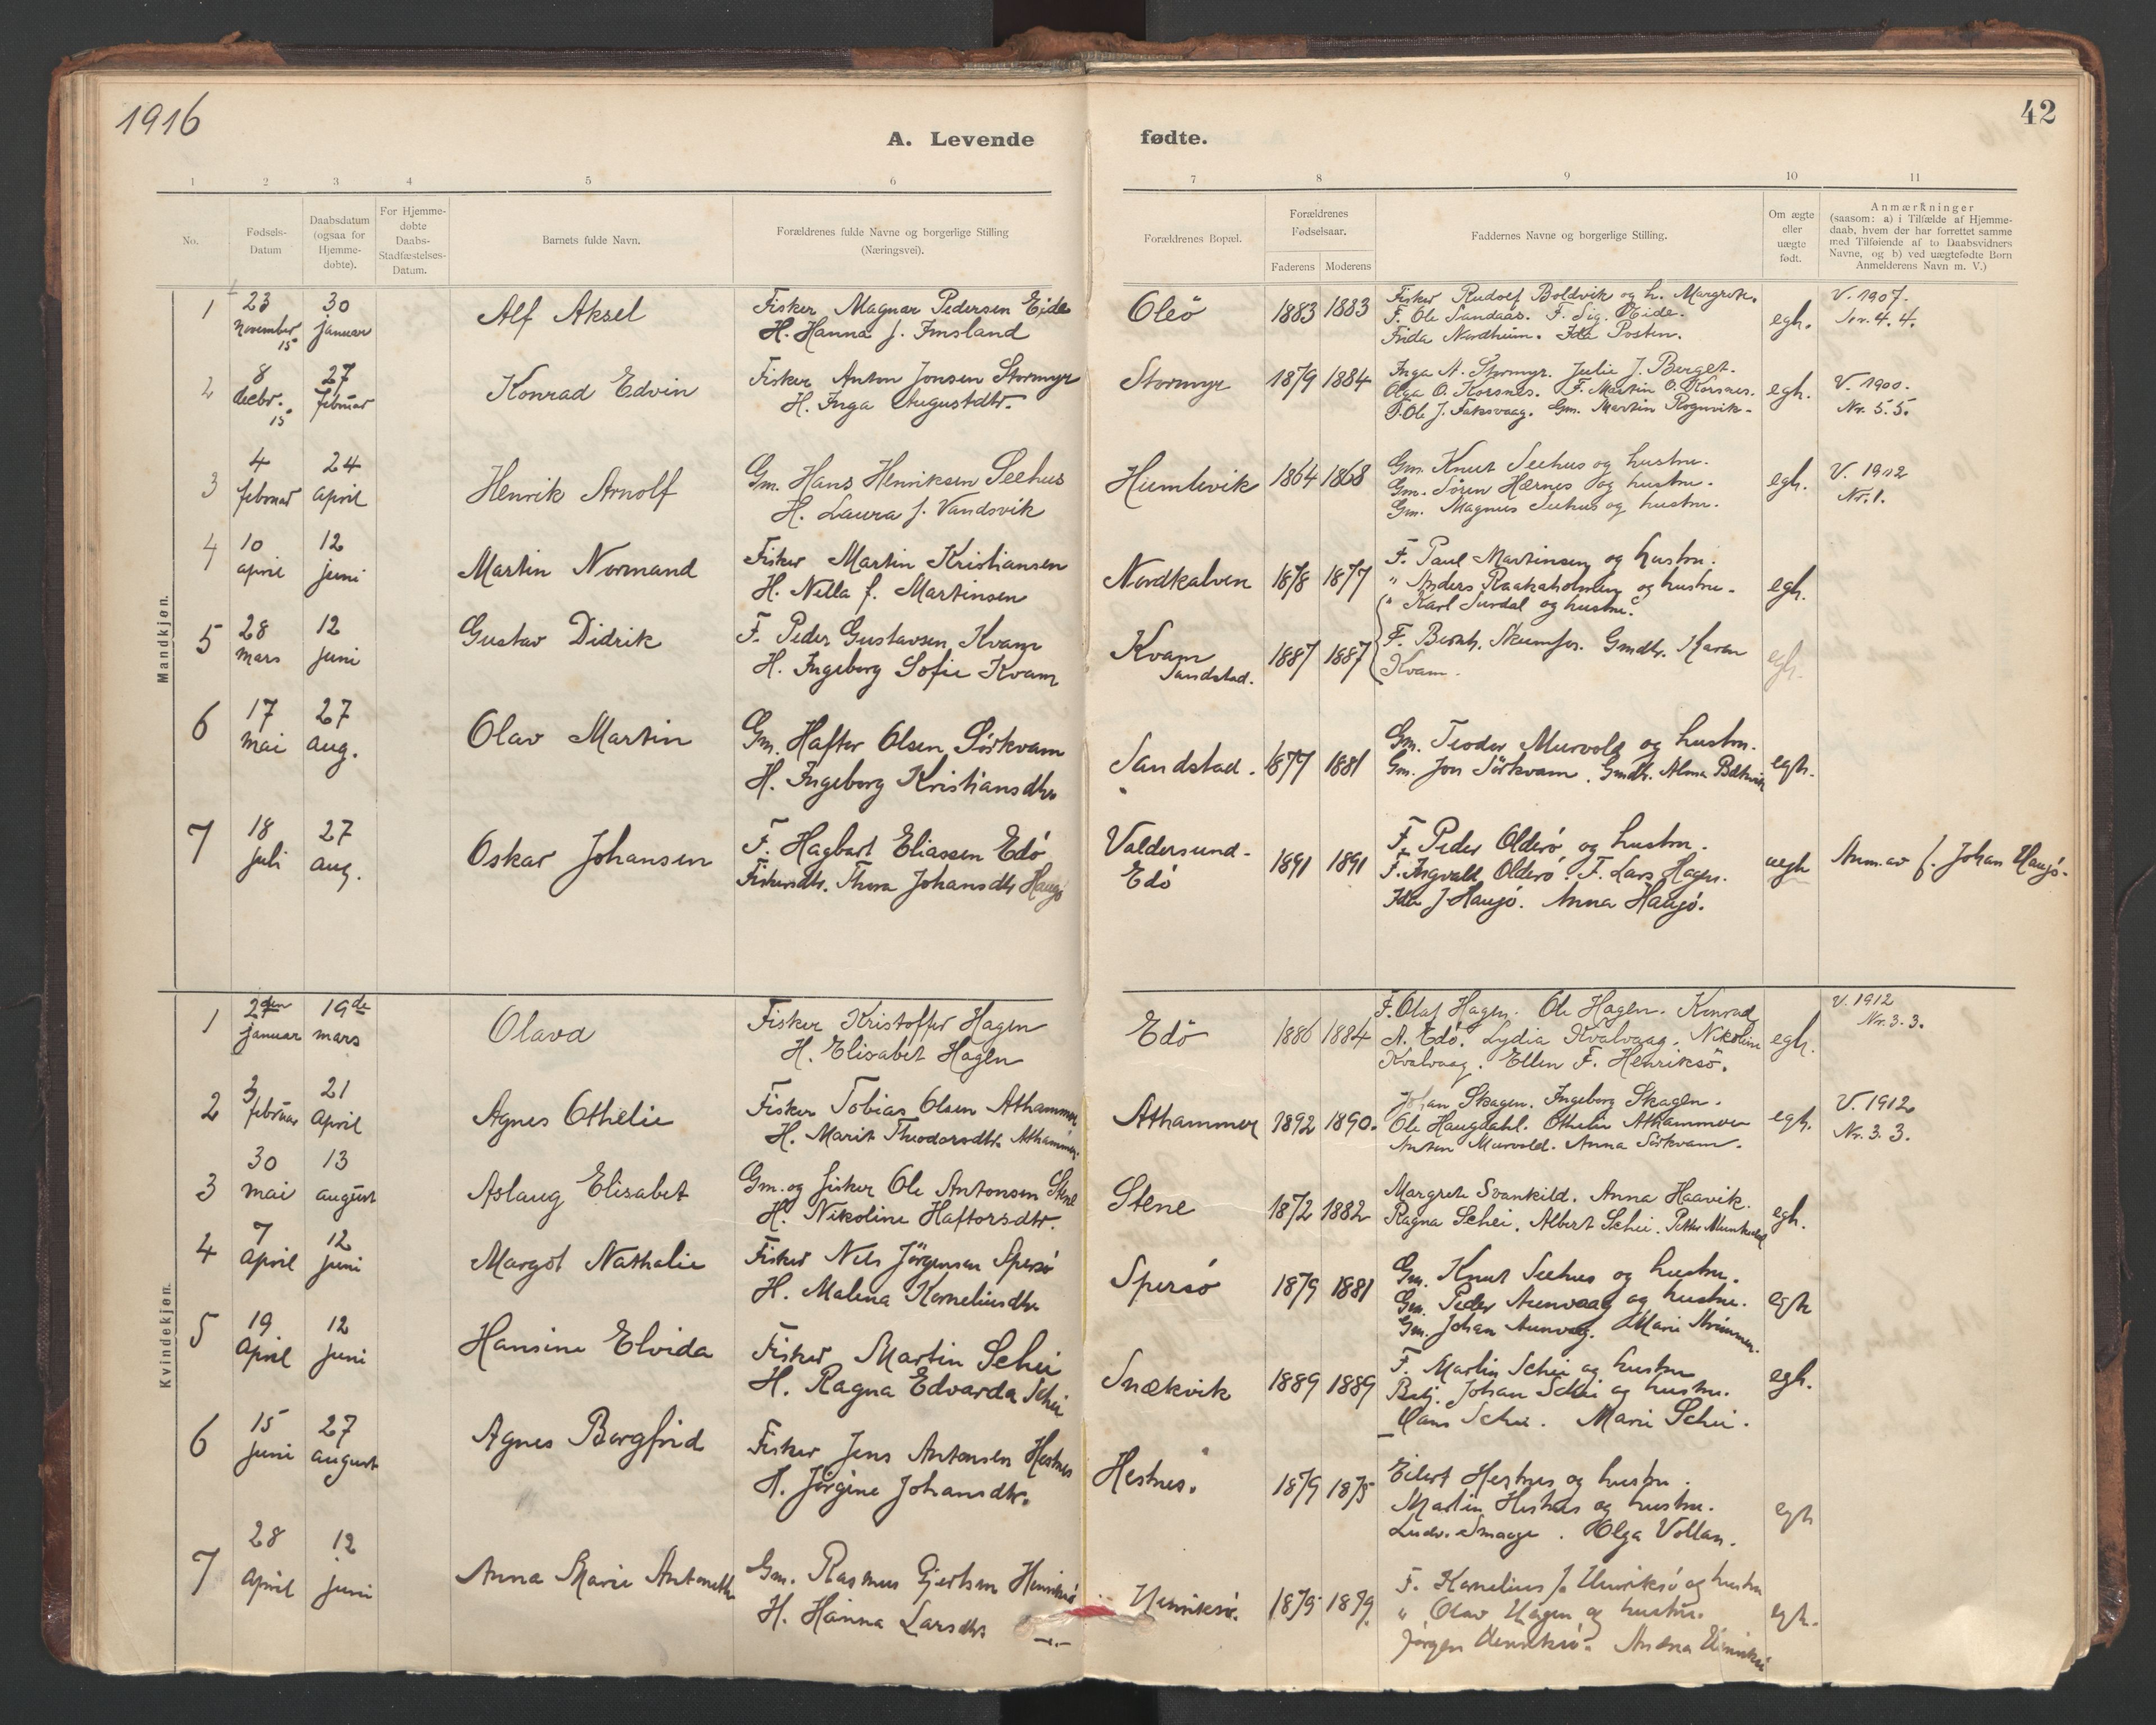 1916
42
A. Levende fødte.
1 2 3 4 5 6 7 8 9 10 11
No.
Fødsels-
Datum
Daabsdatum
(ogsaa for
Hjemme-
døbte).
For Hjemme-
døbte
Daabs-
Stadfæstelses-
Datum.
Barnets fulde Navn.
Forældrenes fulde Navne og borgerlige Stilling
(Næringsvei).
Forældrenes Bopæl.
Forældrenes
Fødselsaar.
Faderens Moderens
Faddernes Navne og borgerlige Stilling.
Om ægte
eller
uægte
født.
Anmærkninger
(saasom: a) i Tilfælde af Hjemme-
daab, hvem der har forrettet samme
med Tilføiende af to Daabsvidners
Navne, og b) ved uægtefødte Børn
Anmelderens Navn m. V.)
Mandkjøn.
1
23
november
15
30
januar
Alf Aksel
Fisker Magnar Pedersen Eide
H. Hanna f. Imsland
Oleö
1883 1883
Fisker Rudolf Boldvik og h. Margrete.
F. Ole Sandaas. F. Sig. Eide.
Frida Nordheim. Ida Posten.
egh.
V. 1907.
Nr. 4. 4.
2
8
decbr.
15
27
februar
Konrad Edvin
Fisker Anton Jonsen Stormyr
H. Inga Augustdtr.
Stormyr
1879 1884
Inga A. Stormyr. Julie J. Berget.
Olga O. Korsnes. F. Martin O. Korsnes.
F. Ole J. Faksvaag. Gm. Martin
egh.
V. 1900.
Nr. 5. 5.
3
4
februar
24
april
Henrik Arnolf
Gm. Hans Henriksen Seehus
H. Laura f. Vandsvik
Hiemlevik
1864 1868
Gm. Knut Seehus og hustru.
Gm. Sören Hernes og hustru.
Gm. Magnus Seehus og hustru.
egh.
V. 1912
Nr. 1.
4
10
april
12
juni
Martin Normand
Fisker Martin Kristiansen
H. Nella f. Martinsen
Nordkalven
1878 1877
F. Paul Martinsen og hustru.
" Anders Raakaholmen og hustru.
" Karl Surdal og hustru.
egh.
5
28
mars
12
juni
Gustav Didrik
F. Peder Gustavsen Kvam
H. Ingeborg Sofie Kvam
Kvam
Sandstad.
1887 1887
F. Bernh. Skumfos. Gmdtr. Karen
Kvam.
egh.
6
17
mai
27
aug.
Olav Martin
Gm. Haftor Olsen Sörkvam
H. Ingeborg Kristiansdtr
Sandstad.
1877 1881
Gm. Teodor Murvold og hustru.
Gm. Jon Sörkvam. Gmdtr. Alma
egh.
7
18
juli
27
aug.
Oskar Johansen
F. Hagbart Eliassen Edö
Fiskerdtr. Thora Johansdtr Haugö
Valdersund-
Edö
1891 1891
F. Peder Olderö og hustru.
F. Ingvald Olderö. F. Lars Hagen.
Ida J. Haugö. Anna Haugö.
uegh
Anm. av f. Johan Haugö.
Kvindekjøn.
1
2den
januar
19de
mars
Olava
Fisker Kristoffer Hagen
H. Elisabet Hagen
Edö
1886 1884
F. Olaf Hagen. Ole Hagen. Konrad
A. Edö. Lydia Kvalvaag. Nikoline
Kvalvaag. Ellen F. Henriksö.
egh.
V. 1912
Nr. 3. 3.
2
3
februar
21
April
Agnes Othelie
Fisker Tobias Olsen Athammer
H. Marit Theodorsdtr. Athammer.
Athammer
1892 1890.
Johan Skagen. Ingeborg Skagen.
Ole Haugdahl. Othelie Athammer
Anton Murvold. Anna Sörkvam.
egh.
V. 1912
Nr. 3. 3.
3
30
mai
13
august
Aslaug Elisabet
Gm. og fisker Ole Antonsen Stene
H. Nikoline Haftorsdtr.
Stene
1872 1882
Margrete Svankild. Anna Haavik.
Ragna Schei. Albert Schei. Petter
egh.
4
7
April
12
juni
Margot Nathalie
Fisker Nils Jörgensen Spersö
H. Malena Korneliusdtr
Spersö
1879 1881
Gm. Knut Seehus og hustru.
Gm. Peder Aunvaag og hustru.
Gm. Johan Aunvaag. Marie
egh
5
19
April
12
juni
Hansine Elvida
Fisker Martin Schei
H. Ragna Edvarda Schei
Snækvik
1889 1889
F. Martin Schei og hustru
Betj. Johan Schei og hustru.
Hans Schei. Marie Schei.
egh.
6
15
juni
27
august
Agnes Bergfrid
Fisker Jens Antonsen Hestnes
H. Jörgine Johansdtr.
Hestnes.
1879 1875
Eilert Hestnes og hustru.
Martin Hestnes og hustru.
Ludv. Smaage. Olga Vollan.
egh
7
28
April
12
juni
Anna Marie Antonette
Gm. Rasmus Gjertsen Henriksö
H. Hanna Larsdtr
Henriksö.
1875 1879.
F. Kornelius J. Henriksö og hustru
" Olav Hagen og hustru.
Jörgen Henriksö. Andrea Henriksö
egh.